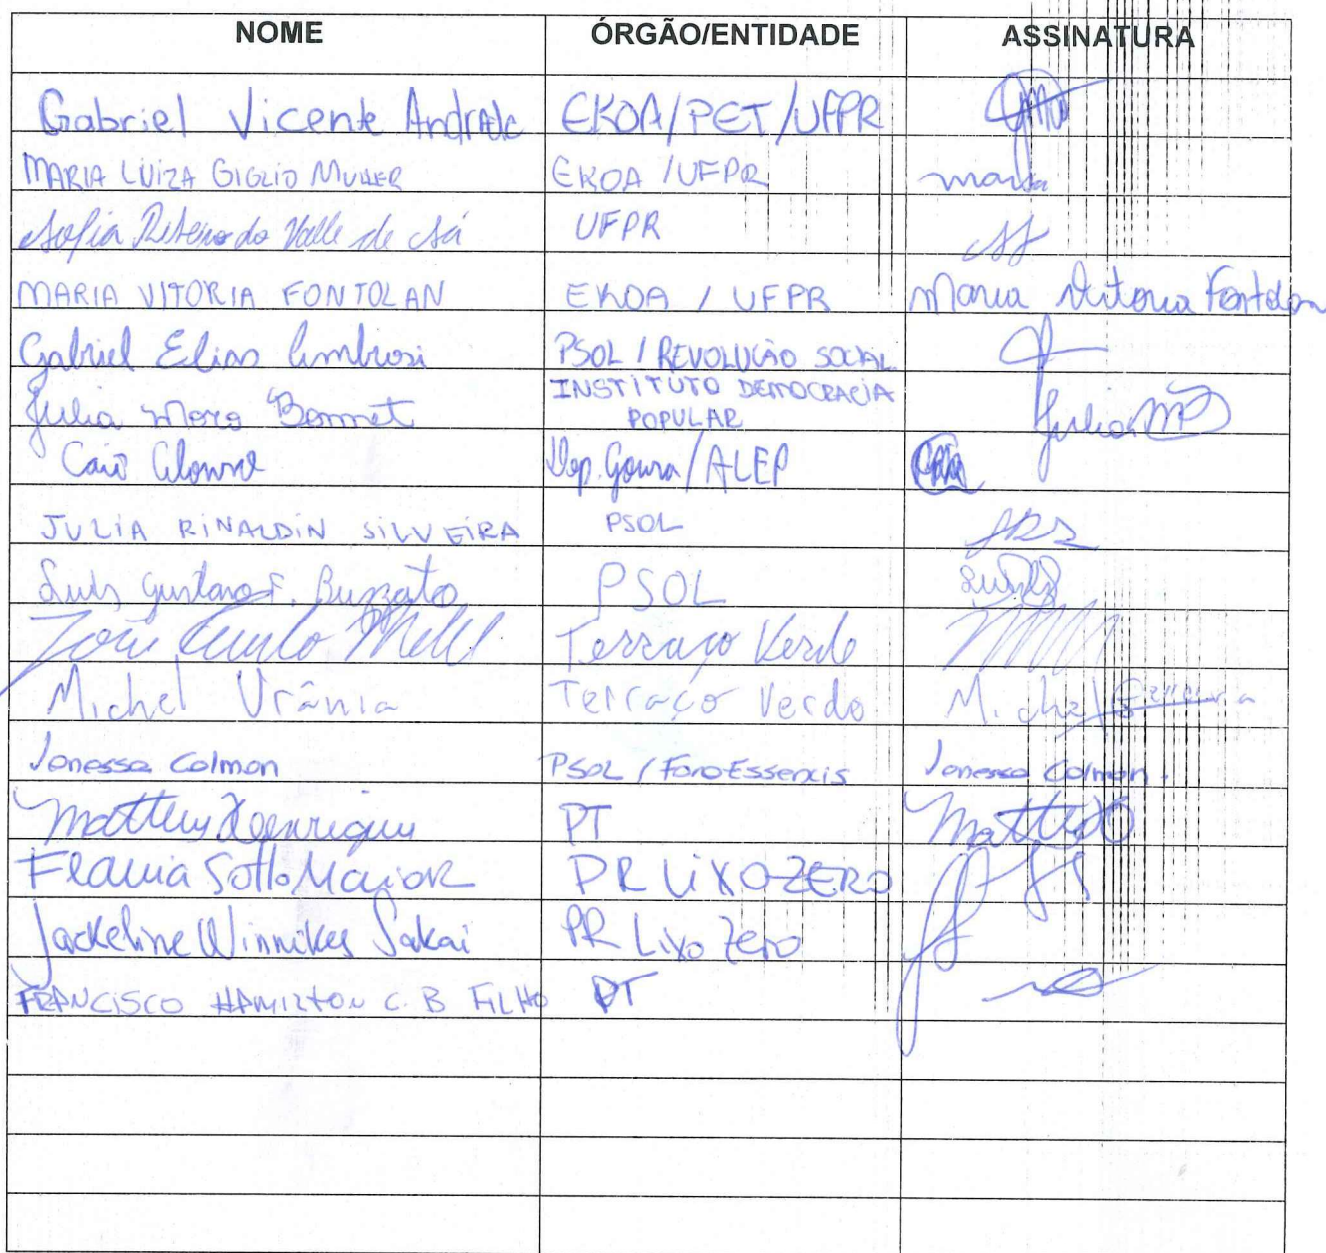 NOME ÓRGÃO/ENTIDADE ASSINATURA
Gabriel Vicente Andrade EKOA/PET/UFPR
MARIA LUIZA GIGLIO MULLER EKOA /UFPR maria
Sofia Ribeiro do Valle de Sá UFPR
MARIA VITORIA FONTOLAN EKOA / UFPR Maria Vitoria Fontolan
Gabriel Elias Ambrosi PSOL / REVOLUÇÃO SOCIAL
Julia Moro Bonnet INSTITUTO DEMOCRACIA
POPULAR Julia
Caio Dep. Goura/ALEP
JULIA RINALDIN SILVEIRA PSOL JRS
Luis Gustavo F. Buzzato PSOL Luis
João Mello Terraço Verde
Michel Urânia Terraço Verde Michel
Vanessa Colman PSOL / Vanessa Colman.
Mattheus Henrique PT
Flavia Sotto Maior PR LiXO ZERO
Jackeline Winnikes Sakai PR Lixo Zero
FRANCISCO HAMILTON C. B FILHO PT